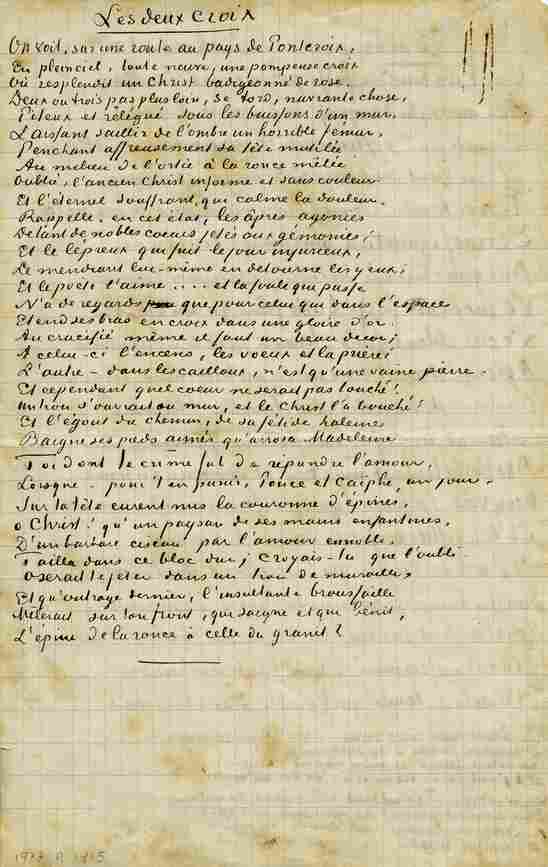 Les deux Croix
On voit, sur une route au pays de Pontcroix,
En plein ciel, toute neuve, une pompeuse croix
Où resplendit un Christ badigeonné de rose.
Deux ou trois pas plus loin, se tord, navrante chose,
Piteux et relégué sous les buissons d'un mur,
Laissant saillir de l'ombre un horrible fémur,
Penchant affreusement sa tête mutilée
Au milieu de l'ortie à la ronce mêlée
Oublié, l'ancien Christ informe et sans couleur
Et l'éternel souffrant, qui calme la douleur.
Rappelle, en cet état, les âpres agonies
De tant de nobles coeurs jetés aux gémonies;
Et le lépreux qui fuit le jour injurieux,
Le mendiant lui-même en détourne les yeux;
Et le poète l'aime .... et la foule qui passe
N'a de regards que pour celui qui dans l'espace
Etend ses bras en croix dans une gloire d'or.
Au crucifié même il faut un beau décor;
A celui-ci l'encens, les voeux et la prière;
L'autre - dans les cailloux, n'est qu'une vaine pierre.
Et cependant quel coeur ne serait pas touché!
Un trou s'ouvrait au mur, et le Christ l'a bouché!
Et l'égout du chemin, de sa fétide haleine
Baigne ses pieds aimés qu'arrosa Madeleine
Toi dont le crime fut de répandre l'amour,
Lorsque pour t'en punir, Ponce et Caïphe, un jour
Sur ta tête eurent mis la couronne d'épines,
O Christ! qu'un paysan de ses mains enfantines,
D'un barbare ciseau par l'amour ennobli,
Tailla dans ce bloc dur; croyais-tu que l'oubli
Oserait te jeter dans un trou de muraille,
Et qu'outrage dernier, l'insultante broussaille
Mêlerait sur ton front, qui saigne et qui bénit,
L'épine de la ronce à celle du granit?